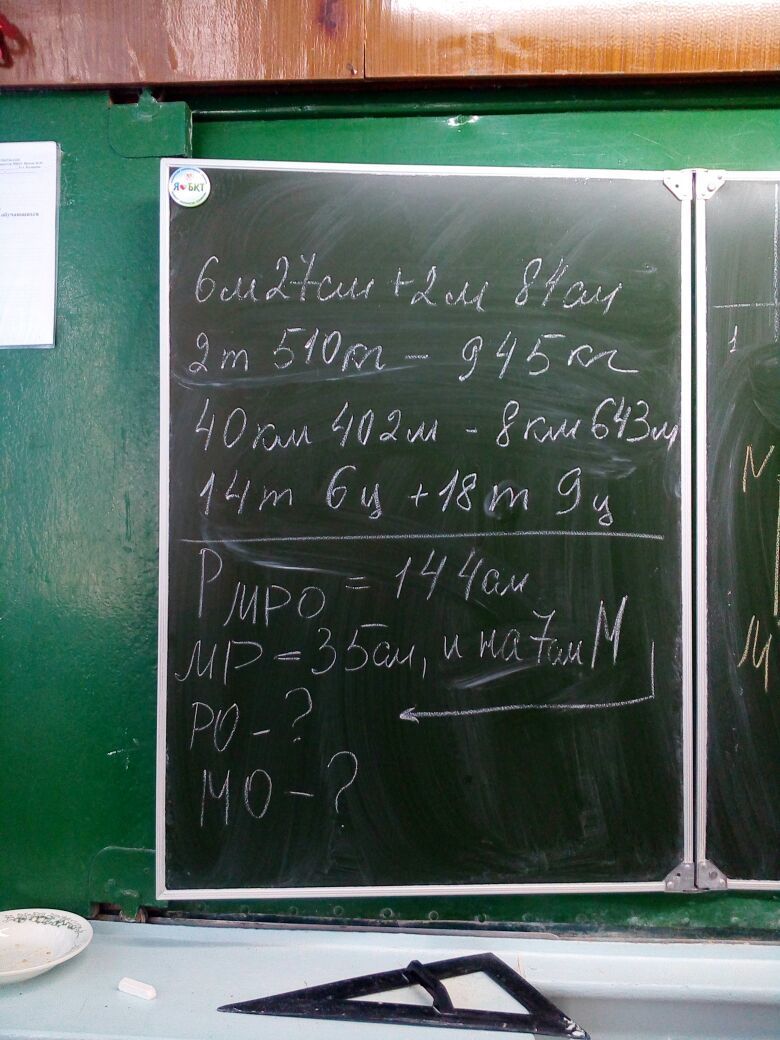 Я БКТ
6м27см + 2м 84см
2т 510кг - 945кг
40км 402м - 8км 643м
14т 6ц + 18т 9ц
P МРО = 144см
МР = 35см, и на 7см М
РО - ?
МО - ?
1
N
М